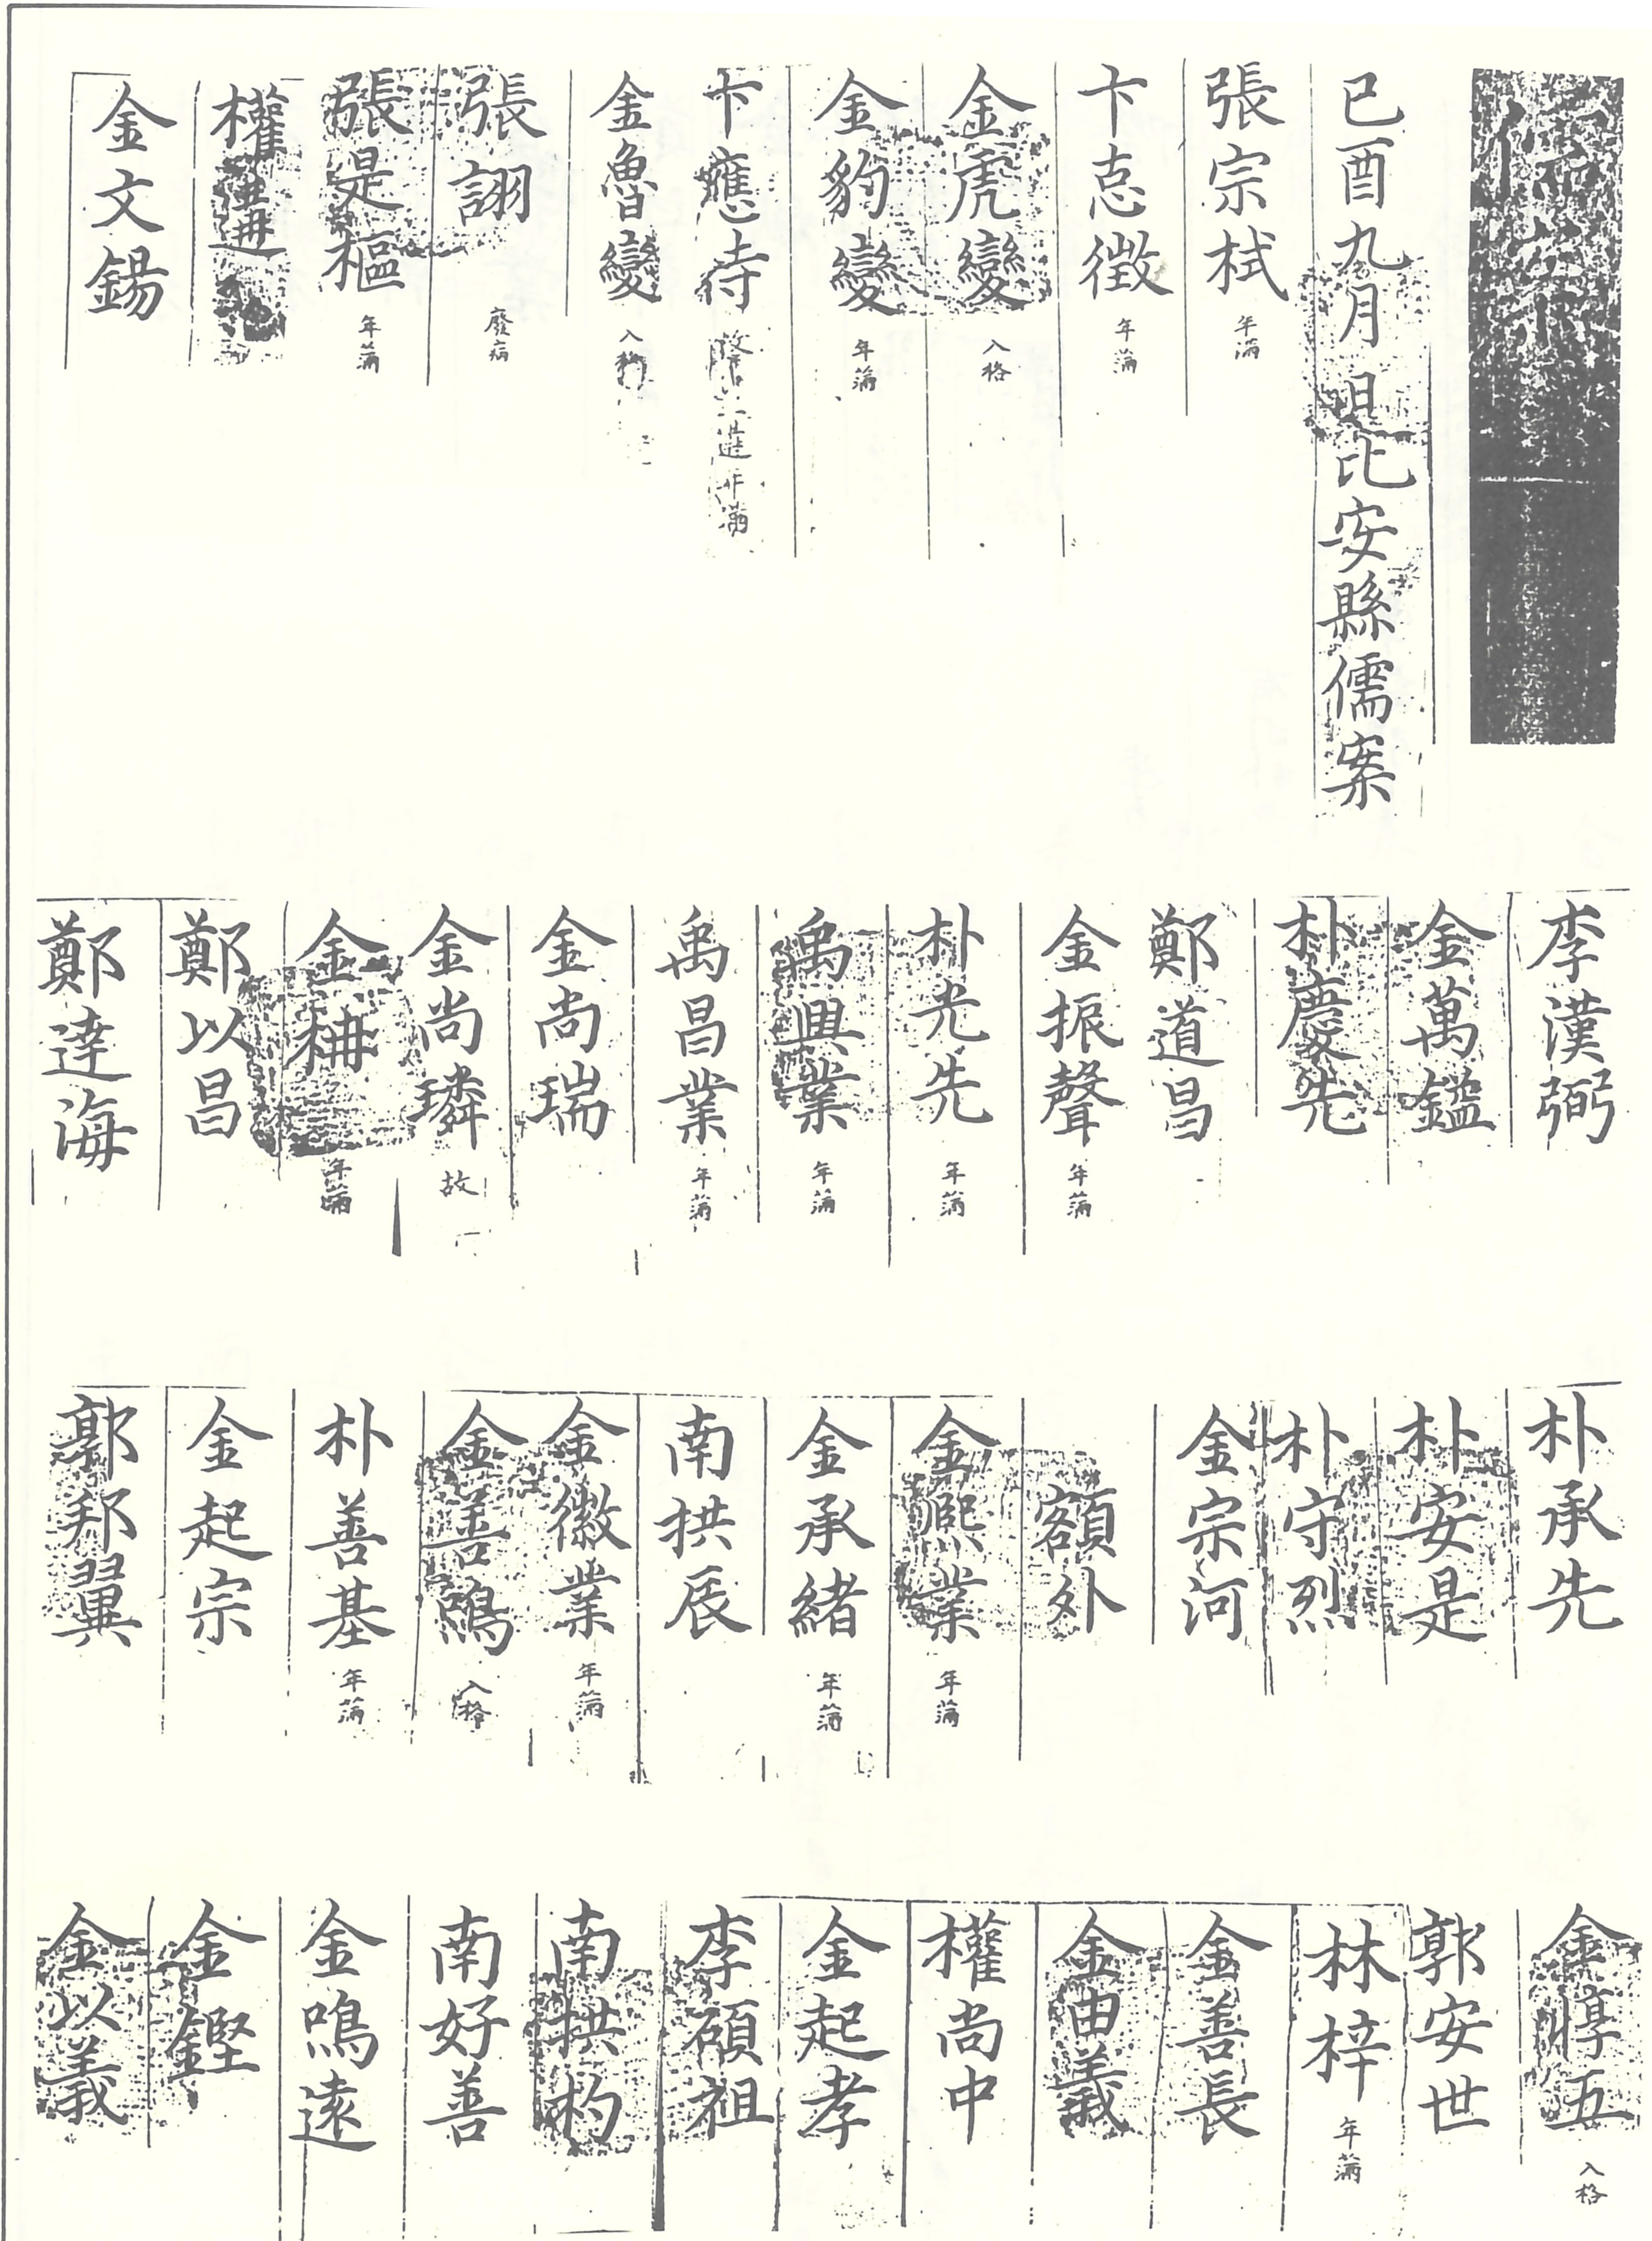 儒案
己酉九月日比安縣儒案
張宗栻 年滿
卞忘徵 年滿
金虎變 入格
金豹變 年滿
卞應待 年滿
金魯變 入格
張詡 廢病
張是樞 年滿
權遘
金文錫
李漢弼
金萬鎰
朴慶先
鄭道昌
金振聲 年滿
朴光先 年滿
禹興業 年滿
禹昌業 年滿
金尚瑞
金尚璘 故
金枏 年滿
鄭以昌
鄭達海
朴承先
朴安是
朴守烈
金宗河
額外
金熙業 年滿
金承緒 年滿
南拱辰
金徽業 年滿
金善鳴 入格
朴善基 年滿
金起宗
郭邦翼
金惇五 入格
郭安世
林梓 年滿
金善長
金由義
權尚中
金起孝
李碩祖
南拱杓
南好善
金鳴遠
金鏗
金以義